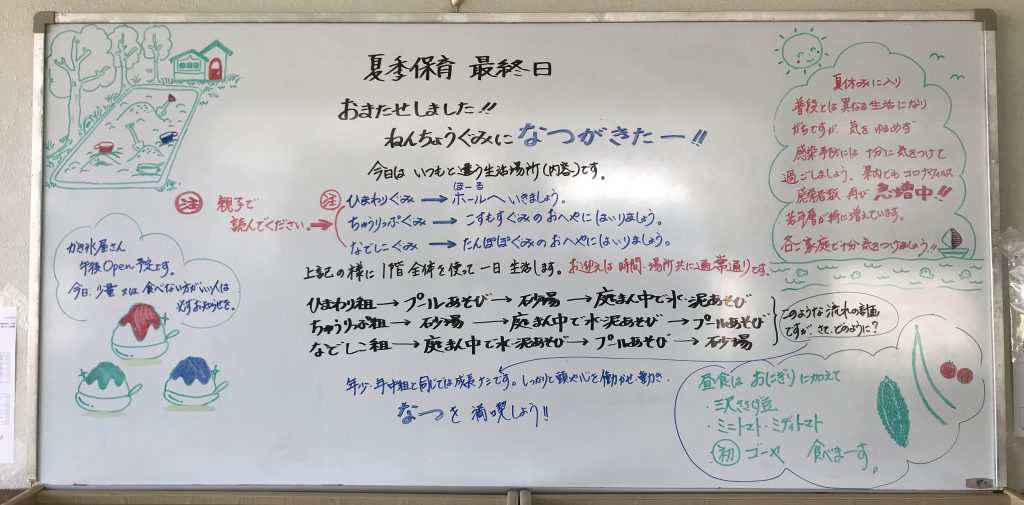 夏季保育 最終日
おまたせしました!!
ねんちょうぐみに なつがきたー!!
今日は いつもと違う生活場所(内容)です。
㊟ 親子で
読んでください。→
㊟ ひまわりぐみ → ホールへいきましょう。
ほーる
ちゅうりっぷぐみ → こすもすぐみのおへやにはいりましょう。
なでしこぐみ → たんぽぽぐみのおへやにはいりましょう。
上記の様に1階全体を使って一日生活します。お迎えは時間・場所共に通常通りです。
ひまわり組→プールあそび→砂場→庭まん中で水・泥あそび
ちゅうりっぷ組→砂場→庭まん中で水・泥あそび→プールあそび
なでしこ組→庭まん中で水・泥あそび→プールあそび→砂場
このような流れの計画
ですが、さて、どのように?
年少・年中組と同じでは成長ナシです。しっかりと頭や心を働かせ・動き・
なつを満喫しよう!!
かき氷屋さん
午後Open予定です。
今日、少量又は、食べない方がいい人は
必ずお知らせを。
夏休みに入り
普段とは異なる生活になり
がちですが、気をゆるめず
感染予防には十分に気をつけて
過ごしましょう。県内でもコロナウイルス
感染者数 再び 急増中!!
若年層が特に増えています。
各ご家庭で十分気をつけましょう!!
昼食は おにぎりに加えて
・三沢ささげ豆
・ミニトマト・ミディトマト
㊗初 ゴーヤ 食べまーす。